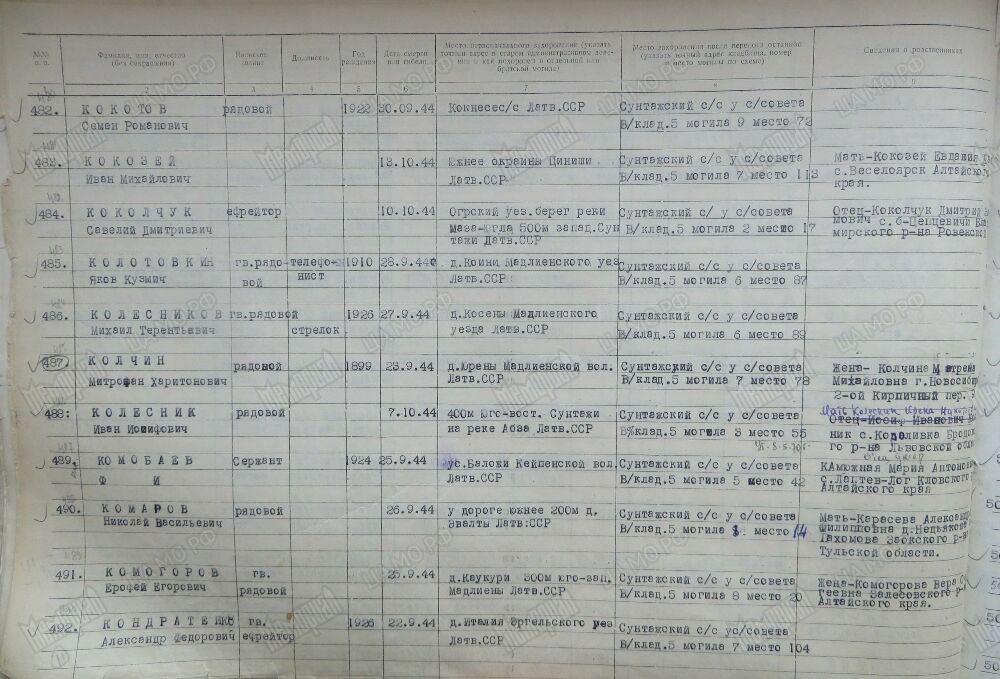 №№ п. п.
Фамилия, имя, отчество (без сокращения)
Воинское звание
Должность
Год рождения
Дата смерти или гибели
Место первоначального захоронения (указать точный адрес в старом административном делении и как похоронен в отдельной или братской могиле)
Место захоронения после переноса останков (указать точный адрес кладбища, номер и место могилы по схеме)
Сведения о родственниках
3 4 5 6 7 8 9
482. КОКОТОВ рядовой 1922 30.09.44 Кокнесес/с Латв.ССР Сунтажский с/с у с/совета
Семен Романович В/клад.5 могила 9 место 72
483. КОКОЗЕЙ 13.10.44 Южнее окраины Циниши Сунтажский с/с у с/совета Мать-Кокозей Евдания
Иван Михайлович Латв.ССР В/клад.5 могила 7 место 113 с.Веселоярск Алтайского
края.
484. КОКОЛЧУК ефрейтор 10.10.44 Огрский уез.берег реки Сунтажский с/ у с/совета Отец-Коколчук Дмитрий
Савелий Дмитриевич Маза-Югла 500м запад.Сун В/клад.5 могила 2 место 17 мович с.б-Пепцевичи
тажи Латв.ССР мирского р-на Ровенской
485. КОЛОТОВКИН гв.рядо- телефо- 1910 28.9.44 д.Коини Мадлиенского уез Сунтажский с/с у с/совета
Яков Кузмич вой нист Латв.ССР В/клад.5 могила 6 место 87
486. КОЛЕСНИКОВ гв.рядовой 1926 27.9.44 д.Косены Мадлиенского Сунтажский с/с у с/совета
Михаил Терентьевич стрелок уезда Латв.ССР В/клад.5 могила 6 место 89
487. КОЛЧИН рядовой 1899 23.9.44 д.Юрены Мадлиенской вол. Сунтажский с/с у с/совета Жена- Колчина Матрена
Митрофан Харитонович Латв.ССР В/клад.5 могила 7 место 78 Михайловна г.Новосиби
2-ой Кирпичный пер.
488: КОЛЕСНИК рядовой 7.10.44 400м Юго-вост. Сунтажи Сунтажский с/с у с/совета Отец-Иосиф Иванович
Иван Иосифович на реке Абза Латв.ССР В%клад.5 могила 3 место 55 ник с.Короливка Бродо
го р-на Львовской обл
489. КОМОБАЕВ Сержант 1924 25.9.44 ус.Баложи Кейпенской вол. Сунтажский с/с у с/совета КАмюжная Мария Антонов
Ф И Латв.ССР В/клад.5 могила 5 место 42 с.Лаптев-Лог Кловского
Алтайского края
490. КОМАРОВ рядовой 26.9.44 у дороге южнее 200м д. Сунтажский с/с у с/совета Мать-Карасева Александ
Николай Васильевич Звалты Латв:ССР В/клад.5 могила 8. место 14 Филипповна д.Недьяково
Пахомова Заокского р-на
Тульской области.
491. КОМОГОРОВ гв. 25.9.44 д.Каукури 300м юго-зап. Сунтажский с/с у с/совета Жена-Комогорова Вера
Ерофей Егорович рядовой Мадлиены Латв.ССР В/клад.5 могила 8 место 20 геевна Залесовского р-
Алтайского края.
492. КОНДРАТЕНКО гв. 1926 22.9.44 д.Италия Эргельского уез Сунтажский с/с ус/совета
Александр Федорович ефрейтор Латв.ССР В/клад.5 могила 7 место 104